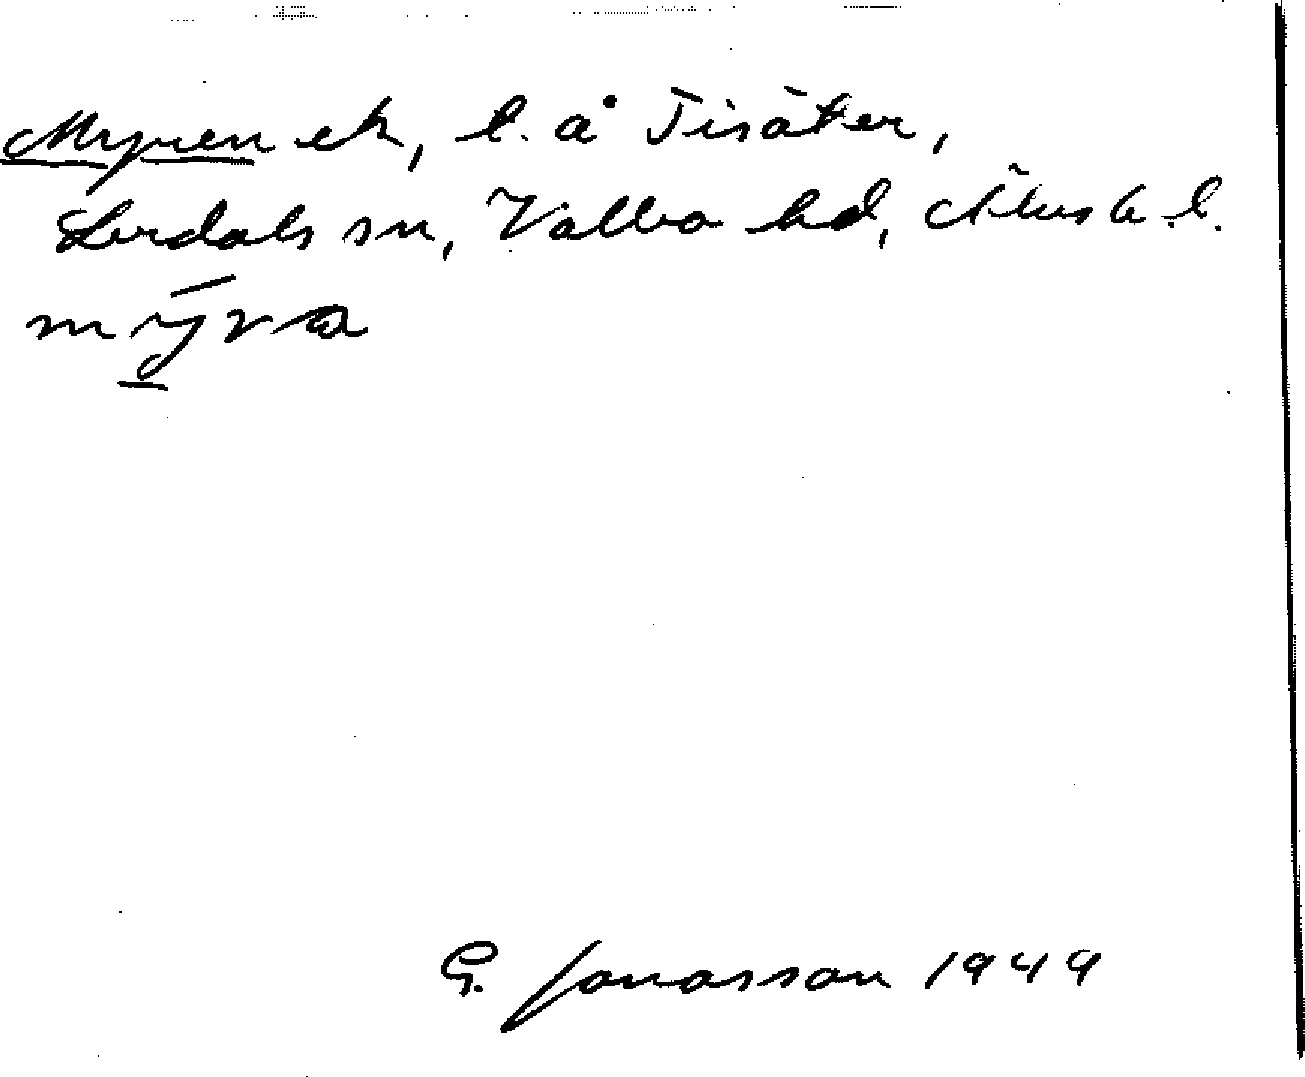 Myren ek, l. å Tisäter,
Lerdals sn, Valbo hd, Älvsb. l.
mȳva
G. Jonasson 1949